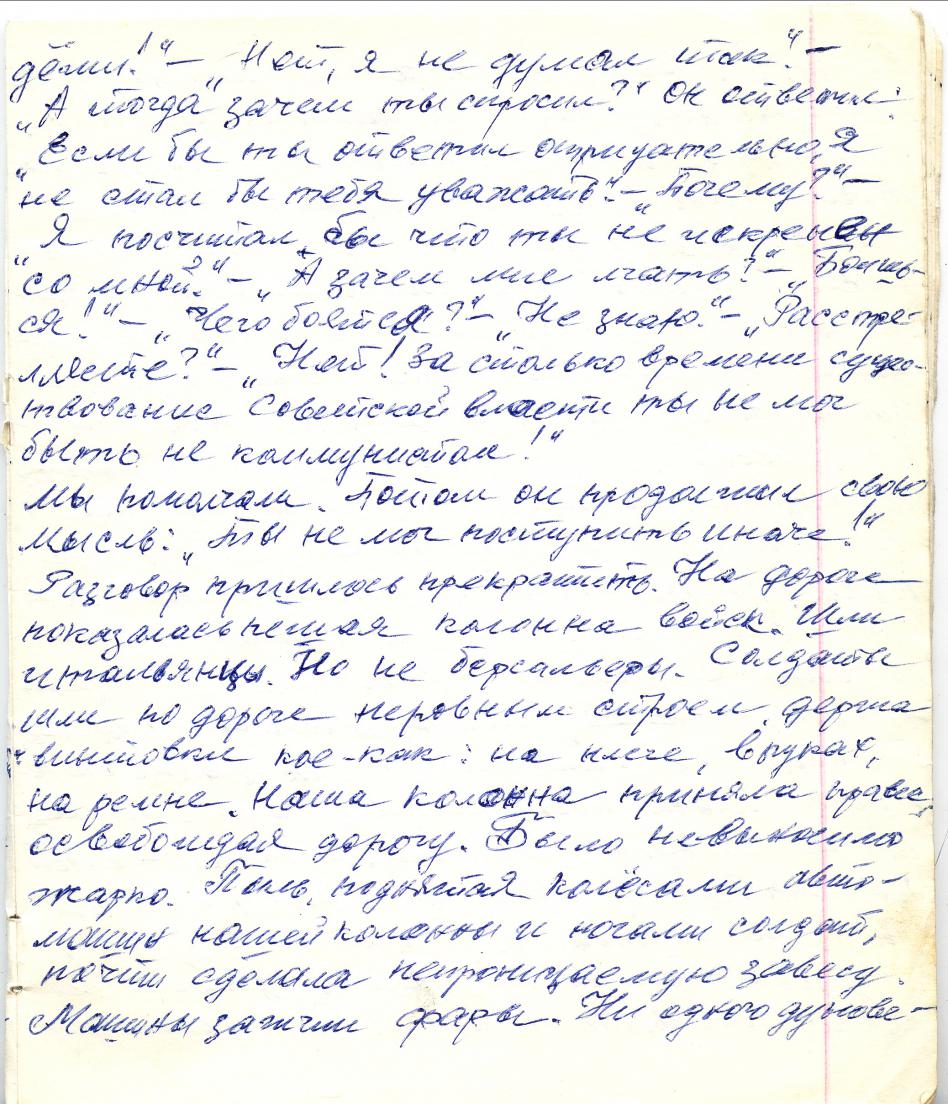 дёми!" – "Нет, я не думал так." –
"А тогда зачем ты спросил?" Он ответил:
"Если бы ты ответил отрицательно, я
не стал бы тебя уважать". – "Почему?" –
"Я посчитал бы, что ты не искренен
со мной." – "А зачем мне лгать?" – "Боишь-
ся!" – "Чего бояться"? – "Не знаю." – "Расстре-
ляете?" – "Нет! За столько времени сущес-
твование Советской власти ты не мог
быть не коммунистом!"
Мы помолчали. Потом он продолжил свою
мысль: "Ты не мог поступить иначе!"
Разговор пришлось прекратить. На дороге
показалась пешая колонна войск. Шли
итальянцы. Но не берсальеры. Солдаты
шли по дороге неровным строем, держа
винтовки кое-как: на плече, в руках,
на ремне. Наша колонна приняла правее,
освобождая дорогу. Было невыносимо
жарко. Пыль, поднятая колёсами авто-
машин нашей колонны и ногами солдат,
почти сделала непроницаемую завесу.
Машины зажгли фары. Ни одного дунове-